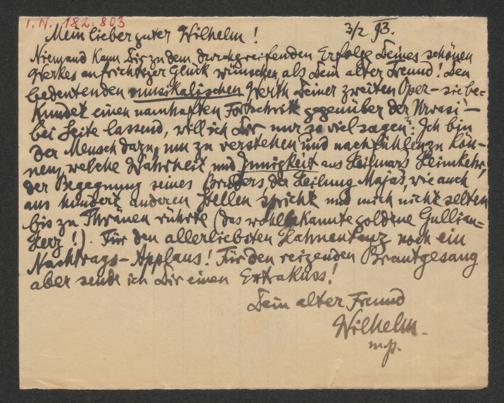 I. N. 182.803
Mein lieber guter Wilhelm! 3/2 93.
Niemand kann Dir zu dem durchgreifenden Erfolge Deines schönen
Werkes aufrichtiger Glück wünschen, als Dein alter Freund! Den
bedeutenden musikalischen Werth Deiner zweiten Oper – sie be-
kundet einen namhaften Fortschritt gegenüber der Urvasi –
bei Seite lassend, will ich Dir nur so viel sagen: Ich bin
der Mensch dazu, um zu verstehen und nachfühlen zu kön-
nen, welche Wahrheit und Innigkeit aus Heimkehr,
der Begegnung seines Bruders, der Heilung Majas, wie auch
aus hundert anderen Stellen spricht und mich nicht selten
bis zu Thränen rührte (das wohlbekannte goldene
Herz!). Für den allerliebsten Hahnentanz noch ein
Nachtrags-Applaus! Für den reizenden Brautgesang
aber sende ich Dir einen Extrakuss!
Dein alter Freund
Wilhelm
m.p.